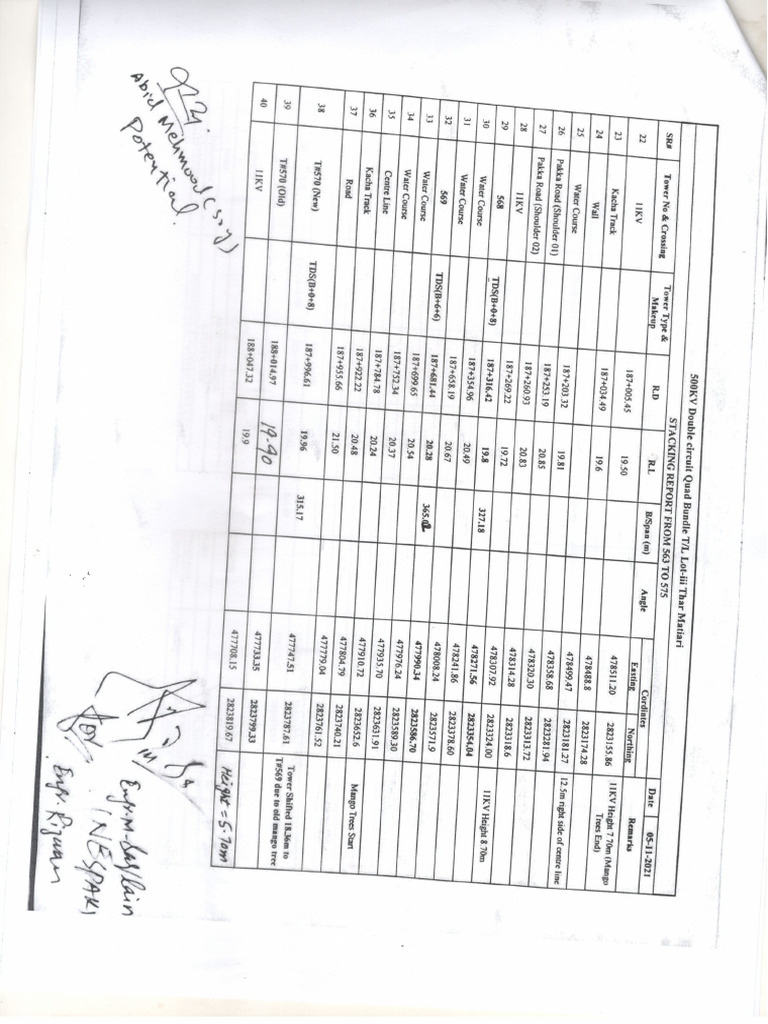 500KV Double circuit Quad Bundle T/L Lot-iii Thar Matiari
STACKING REPORT FROM 563 TO 575
Date 05-11-2021
SR# Tower No & Crossing Tower Type & Makeup R.D R.L B/Span (m) Angle Cordintes Easting Northing Remarks
22 11KV 187+005.45 19.50 478511.20 2823155.86 11KV Height 7.70m (Mango Trees End)
23 Kacha Track 187+034.49 19.6 478488.8 2823174.28
24 Wall 478499.47 2823181.27 12.5m right side of centre line
25 Water Course 187+203.32 19.81 478358.68 2823281.94
26 Pakka Road (Shoulder 01) 187+253.19 20.85 478320.30 2823313.72
27 Pakka Road (Shoulder 02) 187+260.93 20.83 478314.28 2823318.6
28 11KV 187+269.22 19.72 478307.92 2823324.00 11KV Height 8.70m
29 568 TDS(B+0+8) 187+316.42 19.8 327.18 478271.56 2823354.04
30 Water Course 187+354.96 20.49 478241.86 2823378.60
31 Water Course 187+658.19 20.67 478008.24 2823571.9
32 569 TDS(B+6+6) 187+681.44 20.28 365.02 477990.34 2823586.70
33 Water Course 187+699.65 20.54 477976.24 2823589.30
34 Water Course 187+752.34 20.37 477935.70 2823631.91
35 Centre Line 187+784.78 20.24 477910.72 2823652.6
36 Kacha Track 187+922.22 20.48 477804.79 2823740.21 Mango Trees Start
37 Road 187+955.66 21.50 477779.04 2823761.52
38 T#570 (New) TDS(B+0+8) 187+996.61 19.96 315.17 477747.51 2823787.61 Tower Shifted 18.36m to T#569 due to old mango tree
39 T#570 (Old) 188+014.97 19.90 477733.35 2823799.33
40 11KV 188+047.32 19.9 477708.15 2823819.67 Height = 5.70m
Abid Mehmood
Potential
for
NESPAK
Engr. Rizwan